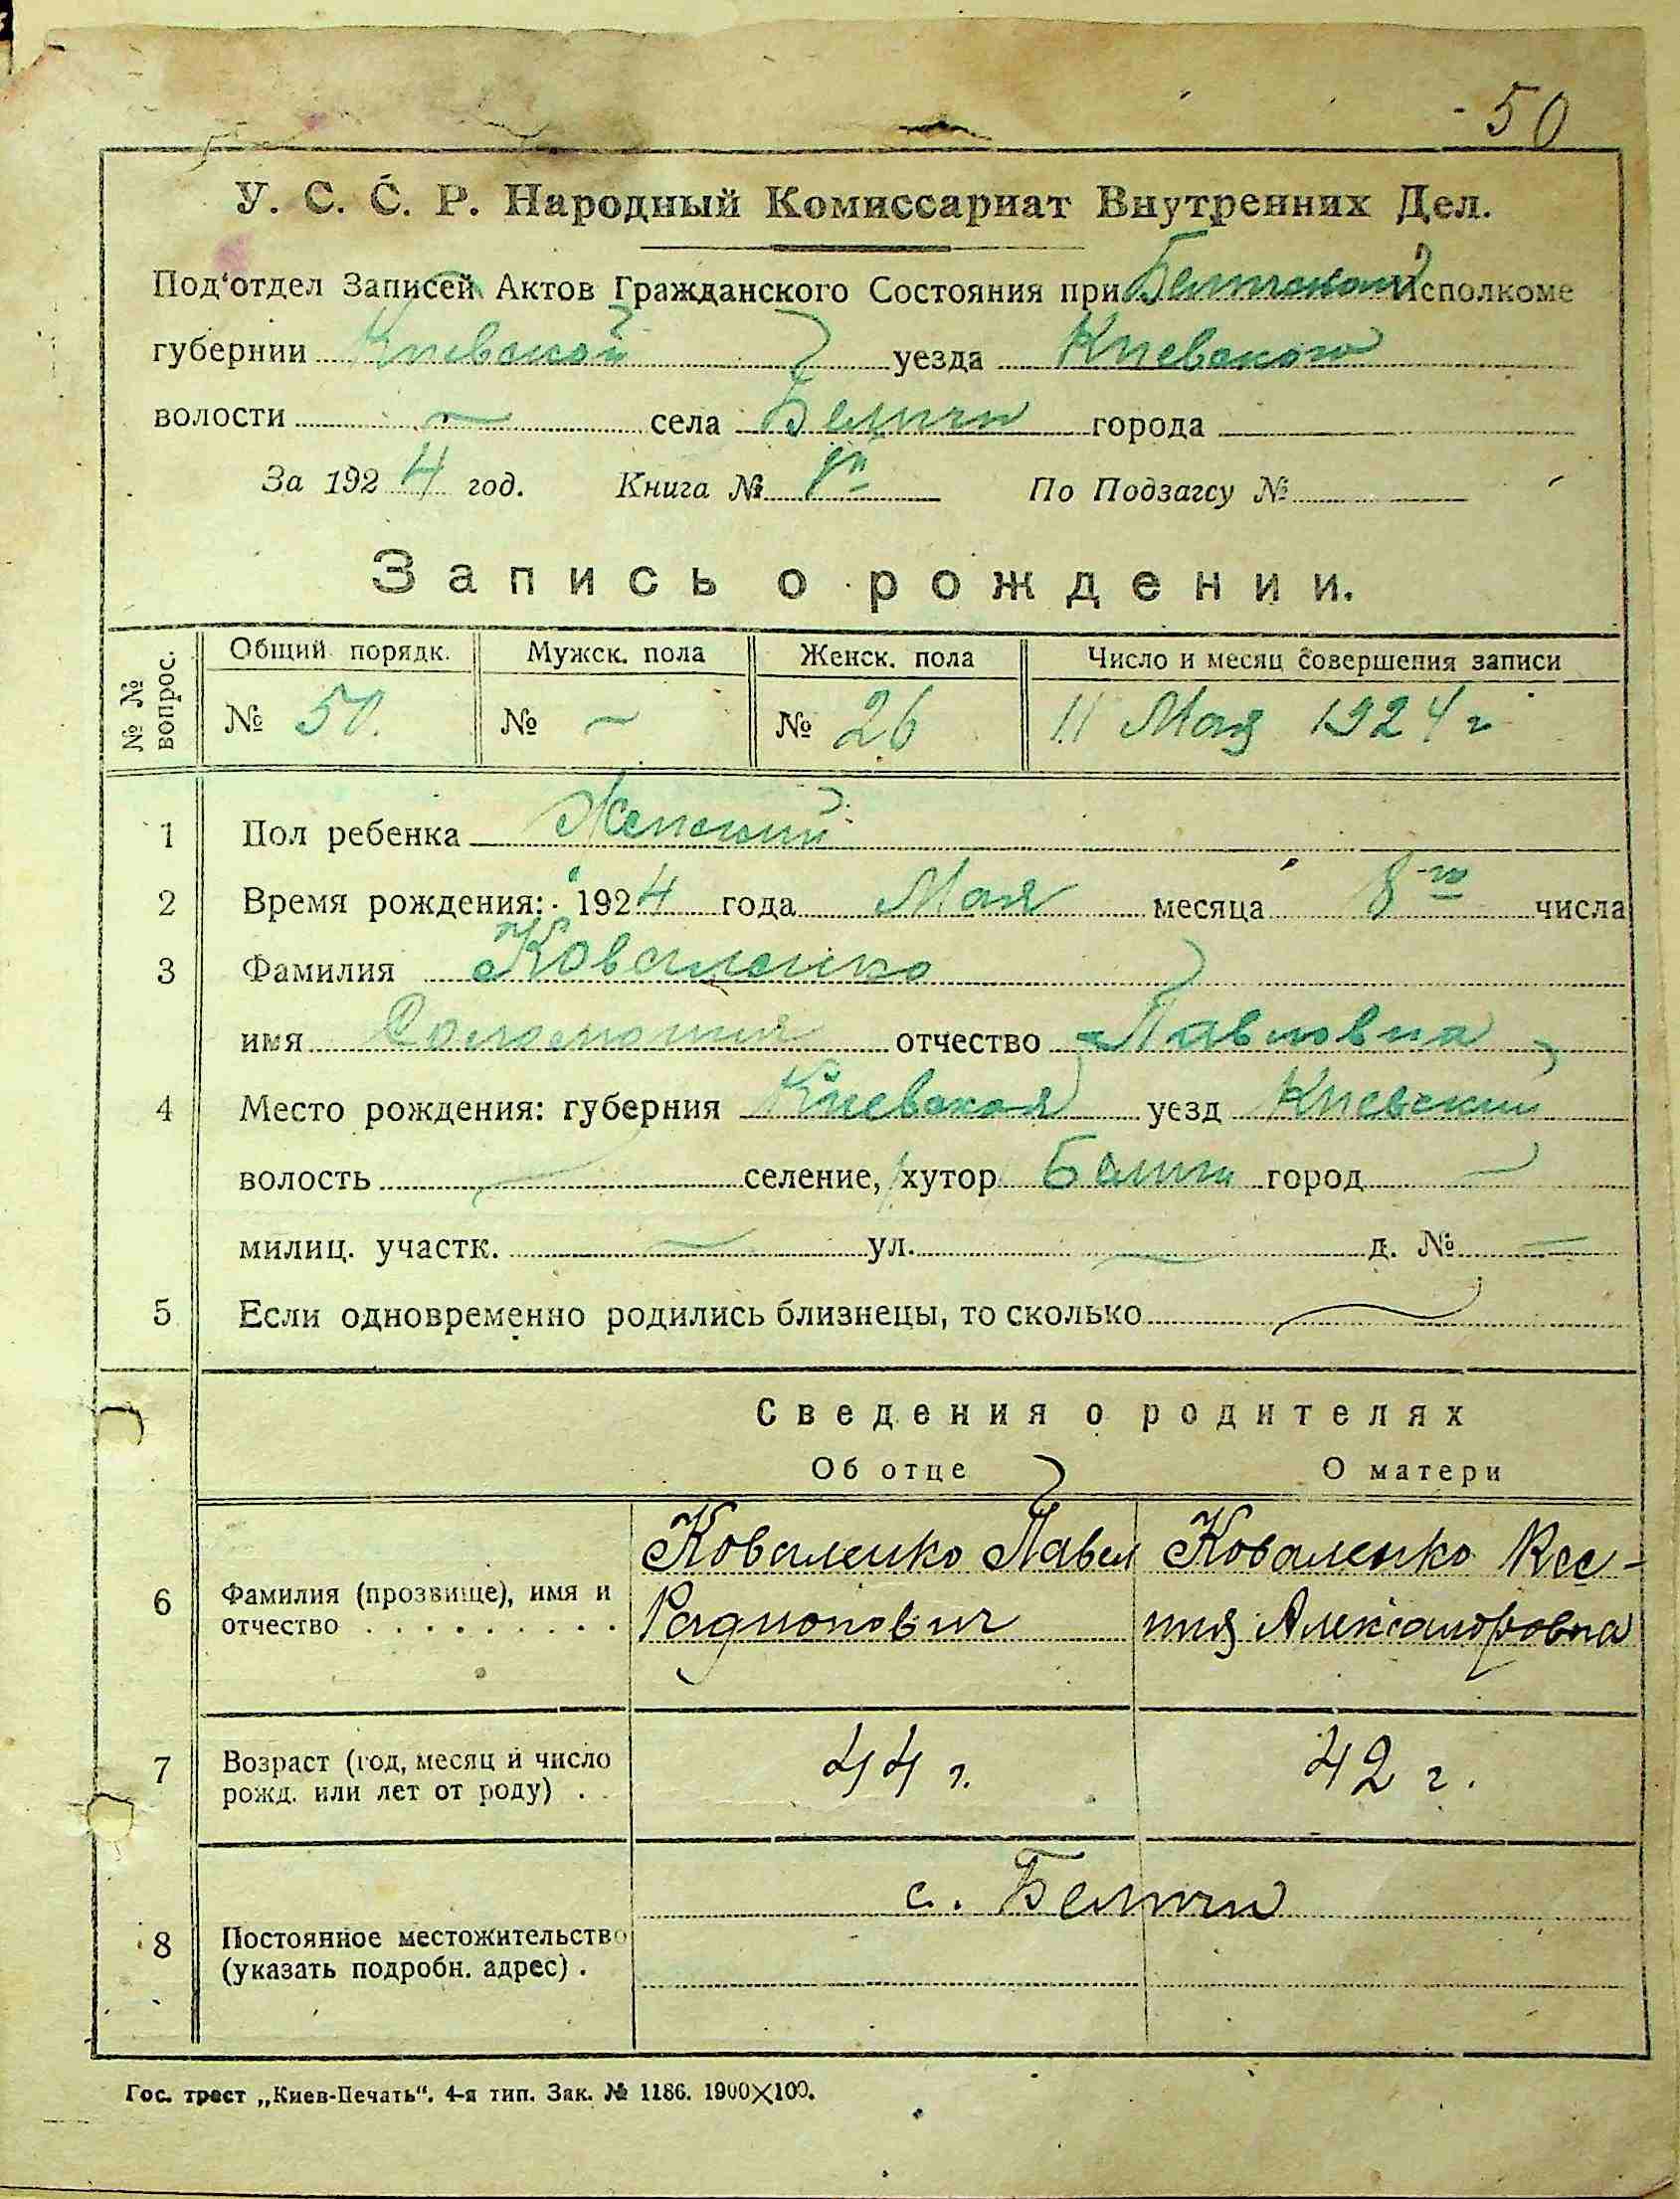 50
У. С. С. Р. Народный Комиссариат Внутренних Дел.
Под'отдел Записей Актов Гражданского Состояния при Беличском Исполкоме
губернии Киевской уезда Киевского
волости — села Беличи города
За 1924 год. Книга № По Подзагсу №
Запись о рождении.
№ № вопрос.
Общий порядк. Мужск. пола Женск. пола Число и месяц совершения записи
№ 50. № — № 26 11 Мая 1924 г
1 Пол ребенка Женский
2 Время рождения: 1924 года Мая месяца 8го числа
3 Фамилия Коваленко
имя Соломония отчество Павловна
4 Место рождения: губерния Киевская уезд Киевский
волость — селение, хутор Беличи город —
милиц. участк. — ул. — д. № —
5 Если одновременно родились близнецы, то сколько —
Сведения о родителях
Об отце О матери
Коваленко Павел Коваленко Ксе-
6 Фамилия (прозвище), имя и
отчество . . . . . . . . . Радионович ния Александровна
7 Возраст (год, месяц и число
рожд. или лет от роду) . . 44 г. 42 г.
с. Беличи
8 Постоянное местожительство
(указать подробн. адрес) .
Гос. трест „Киев-Печать". 4-я тип. Зак. № 1186. 1900×100.